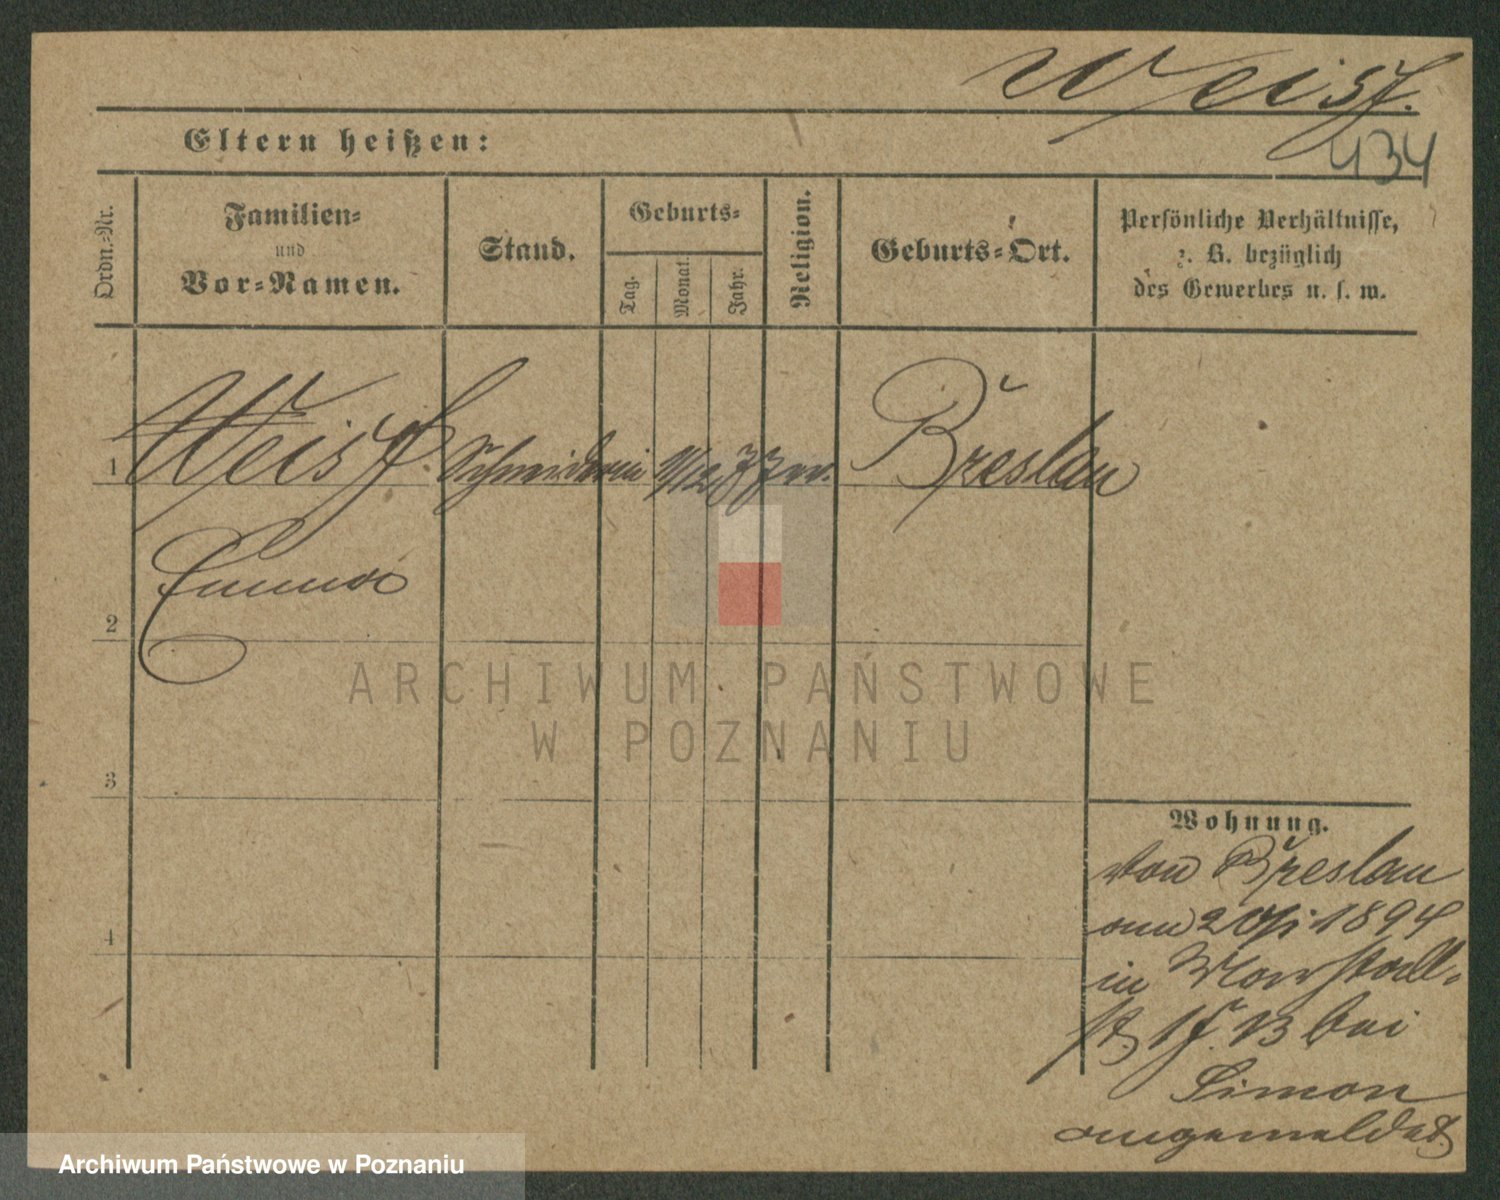 Weiß.
434
Eltern heißen:
Ordn.-Nr.
Familien-
und
Vor-Namen.
Stand.
Geburts-
Tag.
Monat.
Jahr.
Religion.
Geburts-Ort.
Persönliche Verhältnisse,
z. B. bezüglich
des Gewerbes u. s. w.
1 Weiß Schneiderin 11/12 77 ev. Breslau
Emma
2
3
4
Wohnung.
von Breslau
am 20/ 1894
in Marstall-
st. bei
Simon
angemeldet
ARCHIWUM PAŃSTWOWE
W POZNANIU
Archiwum Państwowe w Poznaniu